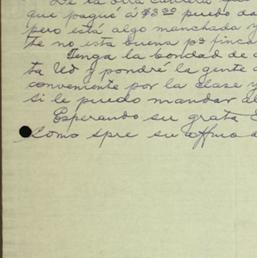 De la otra
que pagué á $3.20 puedo da
pero está algo manchada y
te no esta buena pª finca
Tenga la bondad de
ta Ud y pondré la gente a
conveniente por la clase y
si le puedo mandar al
Esperando su grata
como spre su affmo a